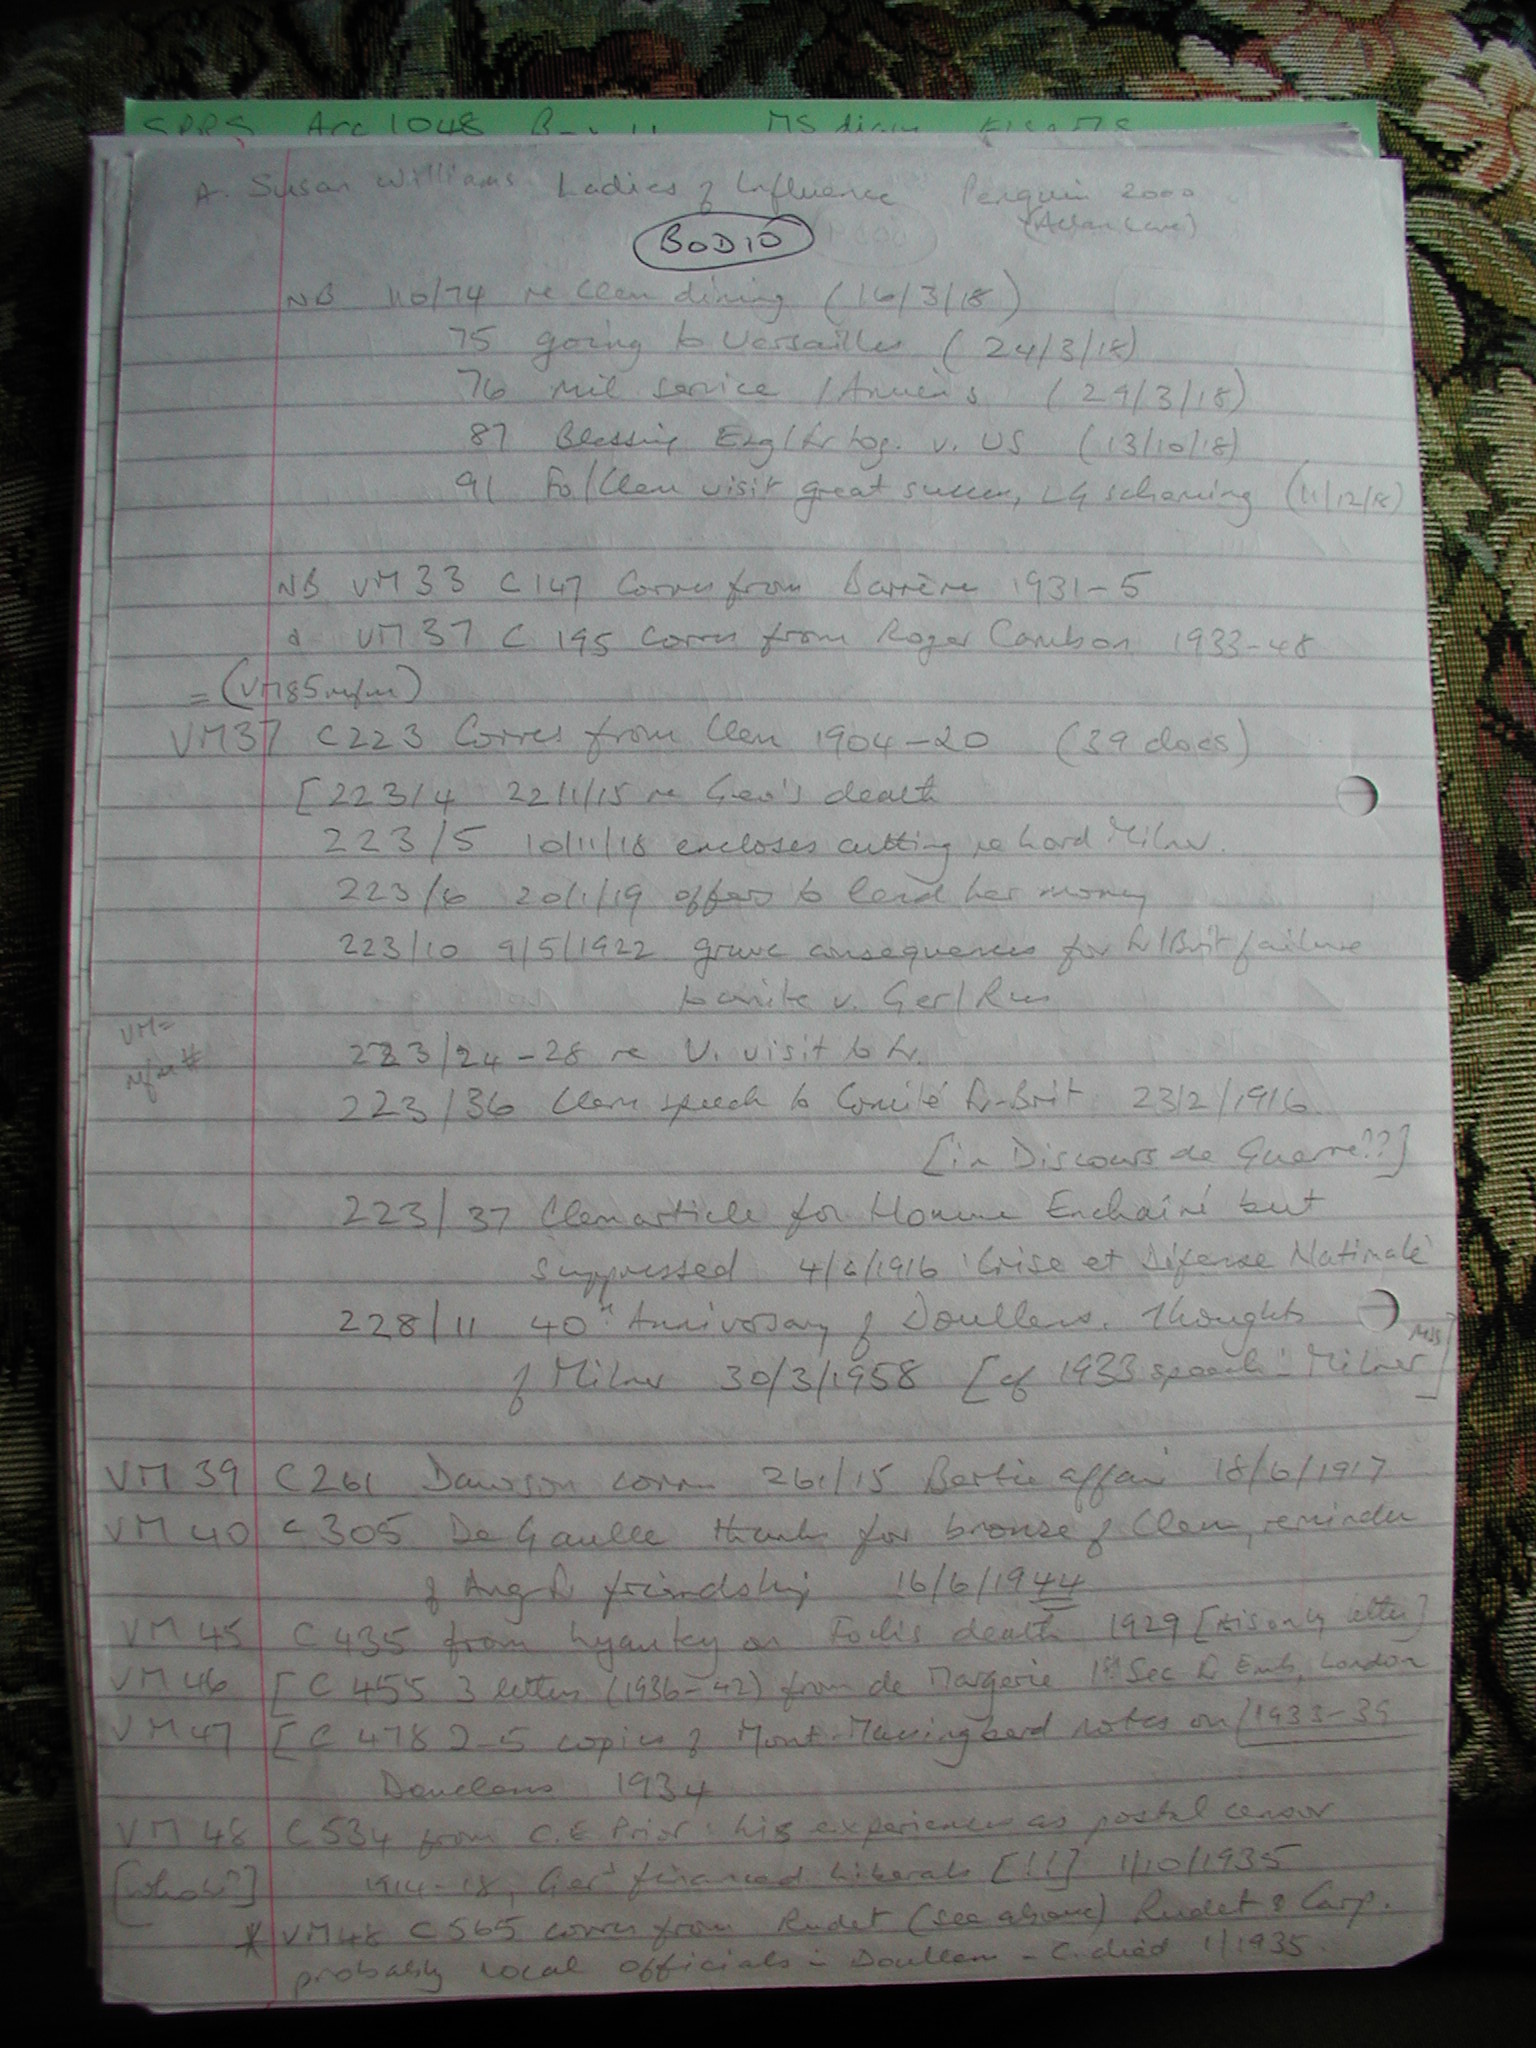 SPRS Arc 1048 MS diary
A. Susan Williams Ladies of Influence Penguin 2000
(Allan Lane)
BOD10
NB 110/74 re Clem dining (16/3/18)
75 going to Versailles (24/3/18)
76 mil service / Amiens (29/3/18)
87 Blessing Eng/Fr tog. v. US (13/10/18)
91 Fo/Clem visit great success, LG scheming (11/12/18)
NB VM33 C147 Corres from Barrère 1931-5
& VM37 C195 Corres from Roger Cambon 1933-48
= (VM85 m/m)
VM37 C223 Corres from Clem 1904-20 (39 docs)
[223/4 22/1/15 re Geo's death
223/5 10/11/18 encloses cutting re Lord Milner.
223/6 20/1/19 offers to lend her money
223/10 9/5/1922 grave consequences for Fr/Brit failure
to unite v. Ger/Rus
VM=
m/m #
223/24-28 re V. visit to Fr.
223/36 Clem speech to Comité Fr-Brit 23/2/1916
[in Discours de Guerre??]
223/37 Clem article for Homme Enchaîné but
suppressed 4/6/1916 'Crise et Défense Nationale'
228/11 40th Anniversary of Doullens. Thoughts
of Milner 30/3/1958 [cf 1933 speech in Milner MSS]
VM 39 C261 Dawson corres 261/15 Bertie affair 18/6/1917
VM 40 C305 De Gaulle thanks for bronze of Clem, reminder
of Ang Fr friendship 16/6/1944
VM 45 C435 from Lyautey on Foch's death 1929 [his only letter]
VM 46 [C 455 3 letters (1936-42) from de Margerie 1st Sec Fr Emb, London
VM 47 [C 478 2-5 copies of Mont-Massingberd notes on /1933-39
Doullens 1934
VM 48 C534 from C.E Prior: his experiences as postal censor
[who is?] 1914-18, Gers financed Liberals [!!] 1/10/1935
* VM48 C565 corres from Rudet (see above) Rudet & Carp.
probably local officials in Doullens - C. died 1/1935.